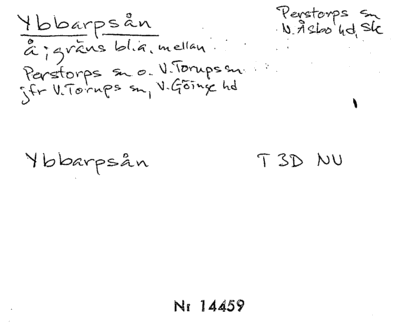 Ybbarpsån
Perstorps sn
N. Åsbo hd, Sk
å; gräns bl.a. mellan
Perstorps sn o. V. Torups sn
jfr V. Torups sn, V. Göinge hd
Ybbarpsån T 3D NU
Nr 14459